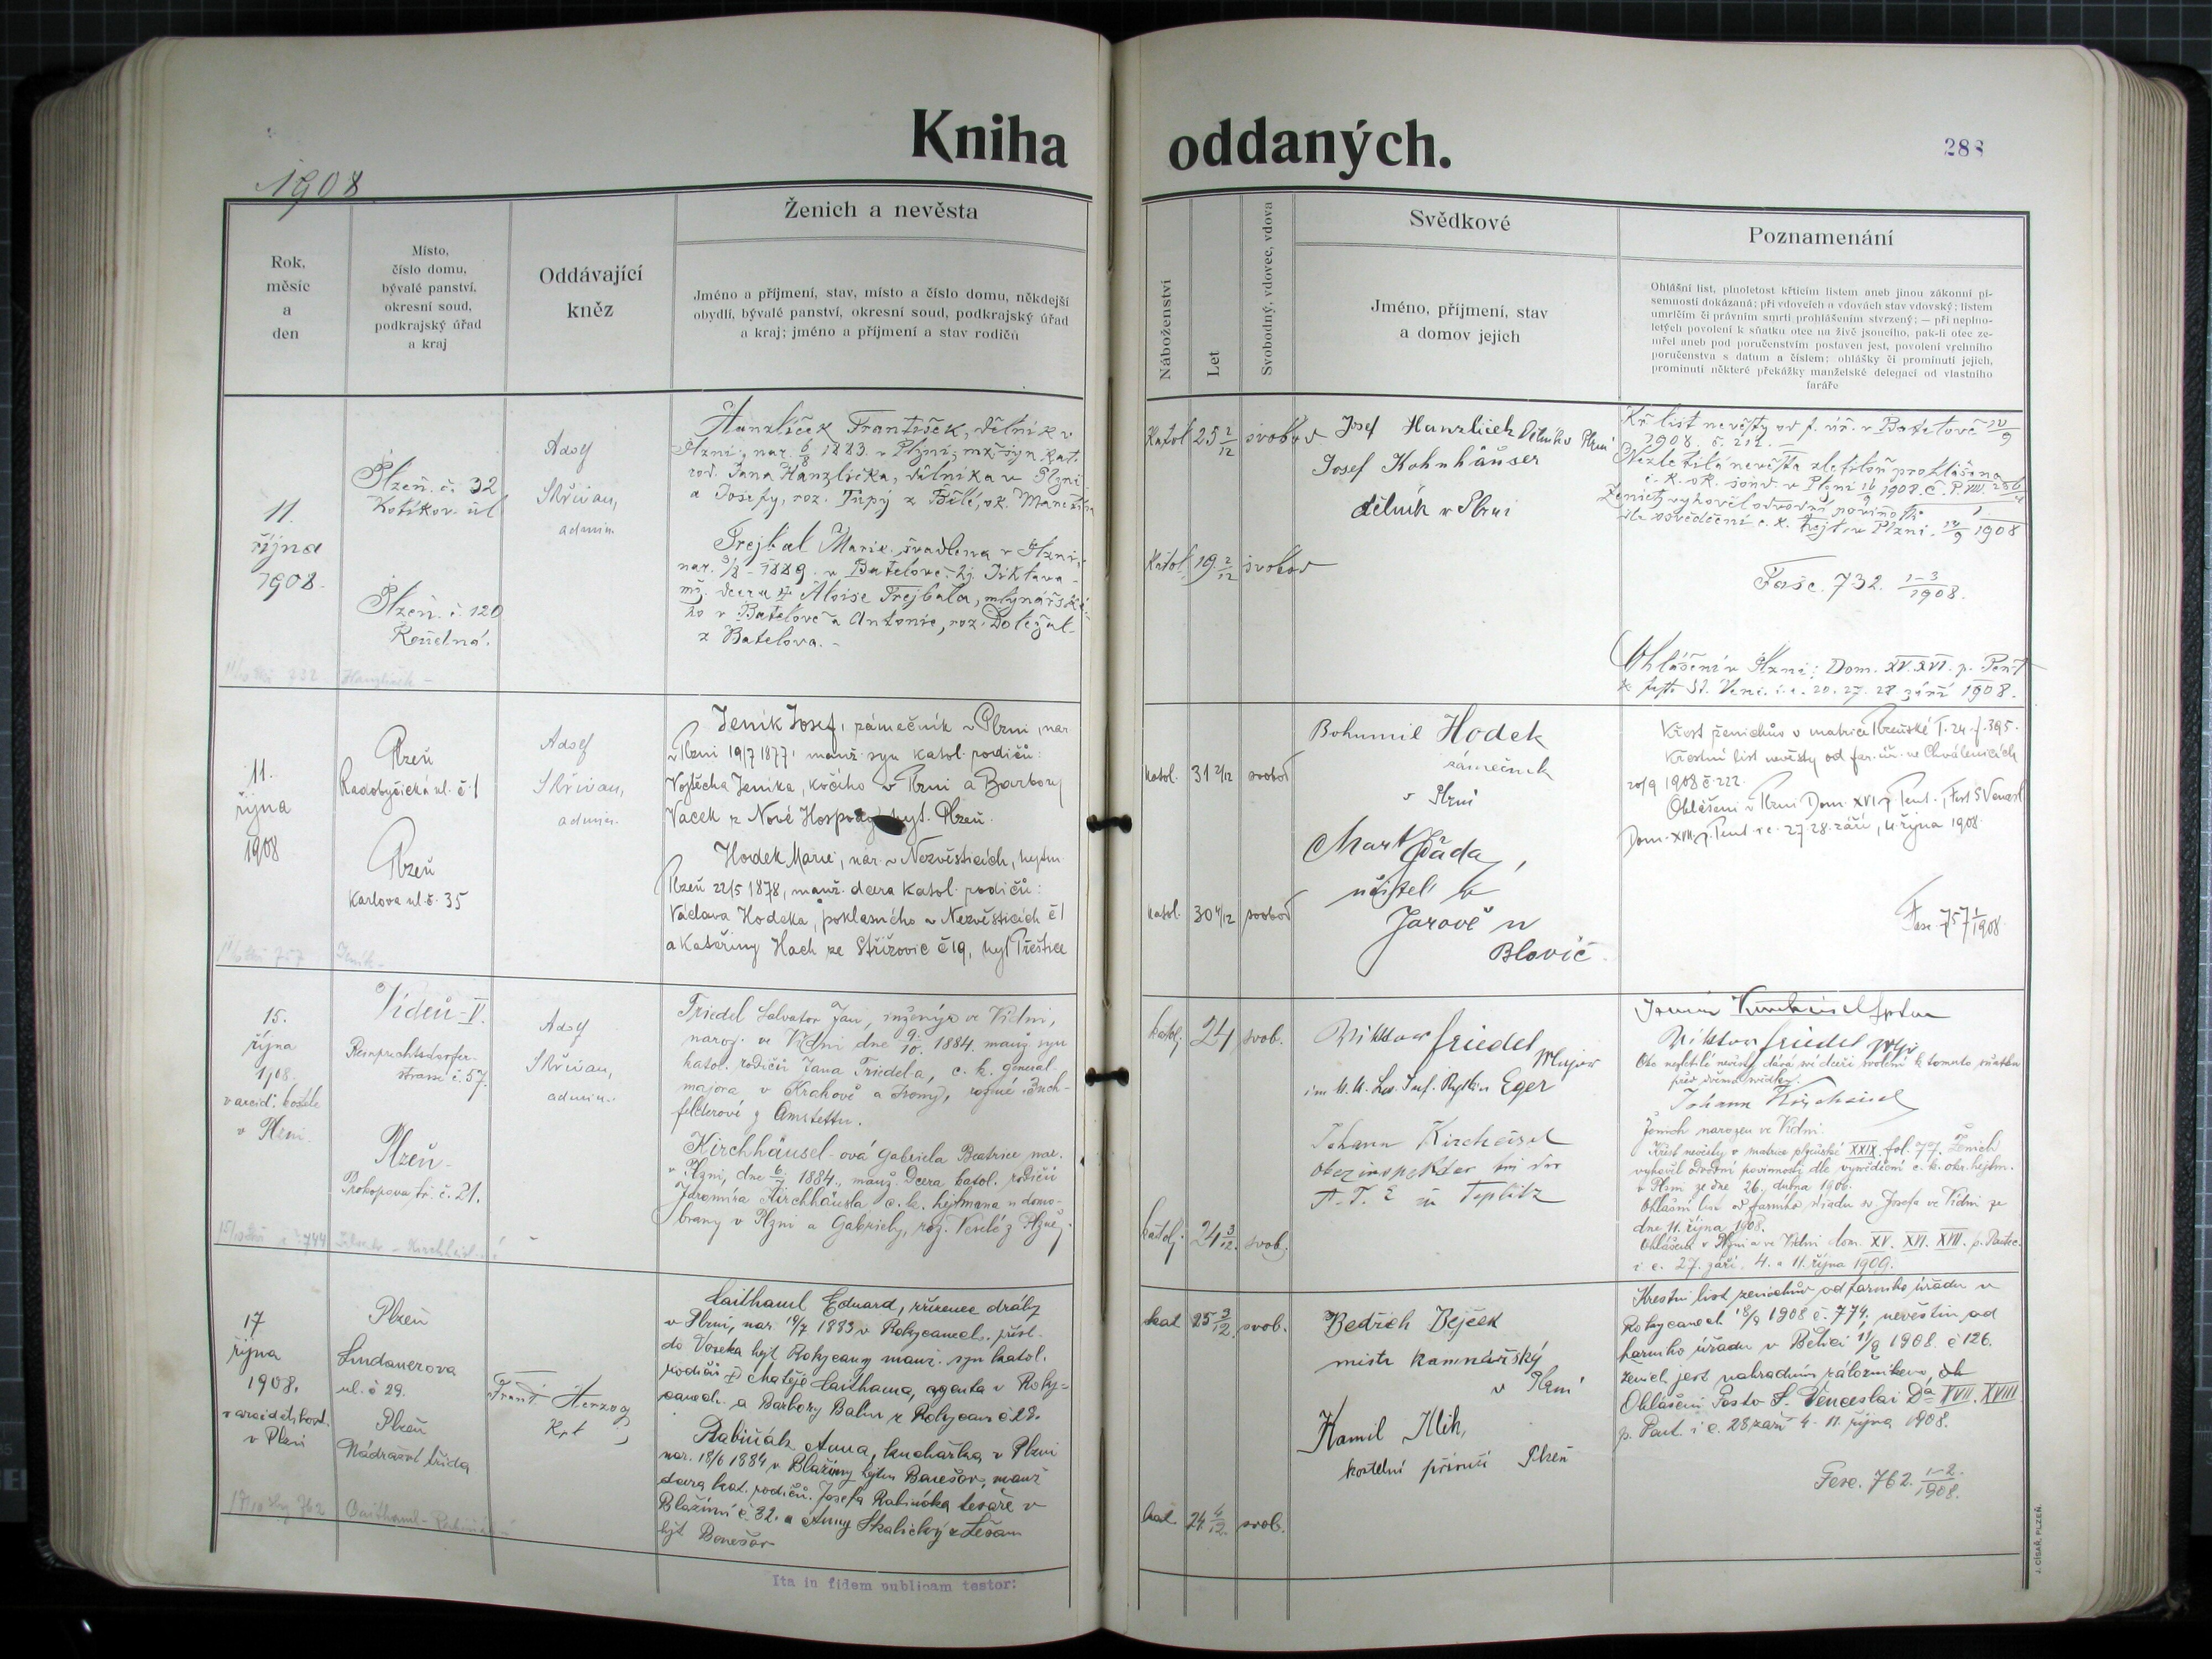 Kniha oddaných.
288
1908
Rok,
měsíc
a
den
Místo,
číslo domu,
bývalé panství,
okresní soud,
podkrajský úřad
a kraj
Oddávající
kněz
Ženich a nevěsta
Jméno a příjmení, stav, místo a číslo domu, někdejší
obydlí, bývalé panství, okresní soud, podkrajský úřad
a kraj; jméno a příjmení a stav rodičů
Náboženství
Let
Svobodný, vdovec, vdova
Svědkové
Jméno, příjmení, stav
a domov jejich
Poznamenání
Ohlášní list, plnoletost křticím listem aneb jinou zákonní pí-
semností dokázaná; při vdovcích a vdovách stav vdovský; listem
umrlčím či právním smrti prohlášením stvrzený; — při neplno-
letých povolení k sňatku otce na živě jsoucího, pak-li otec ze-
mřel aneb pod poručenstvím postaven jest, povolení vrchního
poručenstva s datum a číslem; ohlášky či prominutí jejich,
prominutí některé překážky manželské delegací od vlastního
faráře
11.
října
1908.
Plzeň. č. 32
Kotíkov. ul
Plzeň. č. 120
Koželná.
Adolf
Skřivan,
admin.
Hanzlíček František, dělník v
Plzni, nar. 6/8 1883. v Plzni; mž. syn kat.
rod. Jana Hanzlíčka, dělníka v Plzni
a Josefy, roz. Tupý z Bílé, ok. Manětín
Trejbal Marie, švadlena v Plzni,
nar. 3/8 1889. v Batelově. hj. Jihlava -
mž. dcera Aloise Trejbala, mlynářské-
ho v Batelově a Antonie, roz. Doležal
z Batelova. -
Katol 25 2/12 svobod
Katol 19 2/12 svobod
Josef Hanzlíček Dělník v Plzni
Josef Kohnhäuser
dělník v Plzni
Kř. list nevěsty od f. úř. v Batelově 10/9
1908. č. 212. -
Nezletilá nevěsta zletilou prohlášena
c. k. ok. soud. v Plzni 16/9 1908. č. P. VIII. 286/1
Ženich vyhověl odvodní povinosti
dle osvědčení c. k. hejt. v Plzni. 14/9 1908
Fasc. 732. 1-3/1908.
Ohlášení v Plzni: Dom. XV. XVI. p. Pent
St. Venc. i. e. 20. 27. 28 září 1908.
11.
října
1908
Plzeň
Radobyčická ul. č. 1
Plzeň
Karlova ul. č. 35
Adolf
Skřivan,
admin.
Jeník Josef, zámečník v Plzni, nar.
v Plzni 19/7 1877, manž. syn katol. rodičů:
Vojtěcha Jeníka, kočího v Plzni a Barbory
Vacek z Nové Hospody hyt. Plzeň.
Hodek Marie, nar. v Nezvěsticích, hejtm.
Plzeň 22/5 1878, manž. dcera katol. rodičů:
Václava Hodeka, poklasného v Nezvěsticích č 1
a Kateřiny Hach ze Střížovic č 19, hyt Přeštice
katol. 31 2/12 svobod
katol. 30 4/12 svobod
Bohumil Hodek
zámečník
v Plzni
Mart. Dada,
učitel v
Jarově u
Blovic.
Křest ženichův v matrice Plzeňské T. 24. f. 395.
Křestní list nevěsty od far. úř. ve Chválenicích
20/9 1908 č. 222.
Ohlášení v Plzni Dom. XVI. p. Pent., Fest S Venesl.
Dom. XVII. p. Pent i e. 27. 28. září, 4. října 1908.
Fasc 757 1/1908
15.
října
1908.
v arcid. kostele
v Plzni.
Vídeň - V.
Reinprechtsdorfer-
strasse č. 57.
Plzeň -
Prokopova tř. č. 21.
Adolf
Skřivan,
admin.
Friedel Salvator Jan, inženýr ve Vídni,
naroz. ve Vídni dne 9./10. 1884. manž. syn
katol. rodičů Jana Friedel-a, c. k. general-
majora v Krakově a Irmy, rozené Buch-
felderové z Amstettu.
Kirchhäusel-ová Gabriela Beatrice nar.
v Plzni, dne 6./7. 1884., manž. dcera katol. rodičů
Jaromíra Kirchhäusla c. k. hejtmana u domo-
brany v Plzni a Gabriely, roz. Veselé z Plzně.
katol. 24 svob.
katol. 24 3/12. svob.
Wiktor Friedel Major
im k. k. Lw. Inf. Rgt. in Eger
Johann Kircheisel
Oberinspektor bei der
A. T. E in Teplitz
Wiktor Friedel Mjr
Otec nezletilé nevěsty dává své dceři svolení k tomuto sňatku
před dvěma svědky.
Johann Kircheisel
Ženich narozen ve Vídni.
Křest nevěsty v matrice plzeňské XXIX. fol. 797. Ženich
vyhověl odvodní povinnosti dle vysvědčení c. k. okr. hejtm.
v Plzni ze dne 26. dubna 1906.
Ohlášní list od farního úřadu sv. Josefa ve Vídni ze
dne 11. října 1908.
Ohlášení v Plzni a ve Vídni dom. XV. XVI. XVII. p. Pentec.
i e. 27. září. 4. a 11. října 1909.
17
října
1908.
v arciděk. kost.
v Plzni
Plzeň
Lindauerova
ul. č 29.
Plzeň
Nádražní třída
Frant Herzog
Kpt
Caithaml Eduard, zřízenec dráhy
v Plzni, nar. 19/7 1883 v Rokycanech, přísl.
do Voseka hejt Rokycany manž. syn katol.
rodičů Matěje Caithamla, agenta v Roky-
canech. a Barbory Bahn z Rokycan č 28.
Rabiňák Anna, kuchařka v Plzni
nar. 18/6 1884 v Blažimy hejtm Benešov, manž
dcera kat. rodičů. Josefa Rabiňáka tesaře v
Blažimi č. 32. a Anny Skalický z Lešan
hjt Benešov
kat. 25 3/12. svob.
kat. 24 4/12. svob.
Bedřich Bejček
mistr kamnářský
v Plzni
Kamil Klik,
kostelní příručí Plzeň
Krestní list ženichův od farního úřadu v
Rokycanech 18/9 1908 č. 774, nevěstin od
farního úřadu v Bělici 11/9 1908. č 126.
Ženich jest nahradním záložníkem.
Ohlášeni Festo S. Venceslai Da XVII. XVIII
p. Pent. i e. 28 září 4. 11. října 1908.
Fasc. 762. 1-2./1908.
Ita in fidem publicam testor:
J. CÍSAŘ, PLZEŇ.